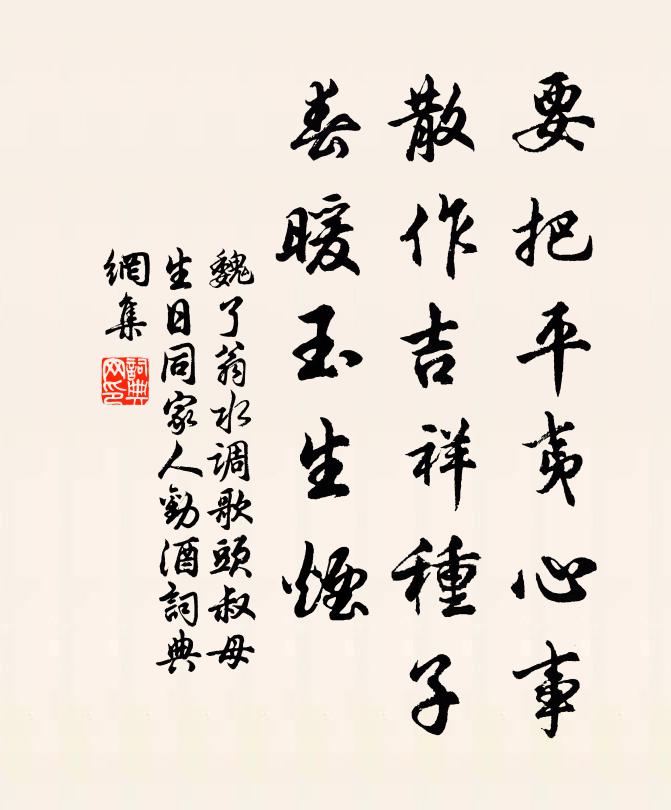 要把平夷心事
散作吉祥種子
春暖玉生煙
魏了翁水调歌頭叔母
生日同家人勸酒詞典
網集
詞典
网印